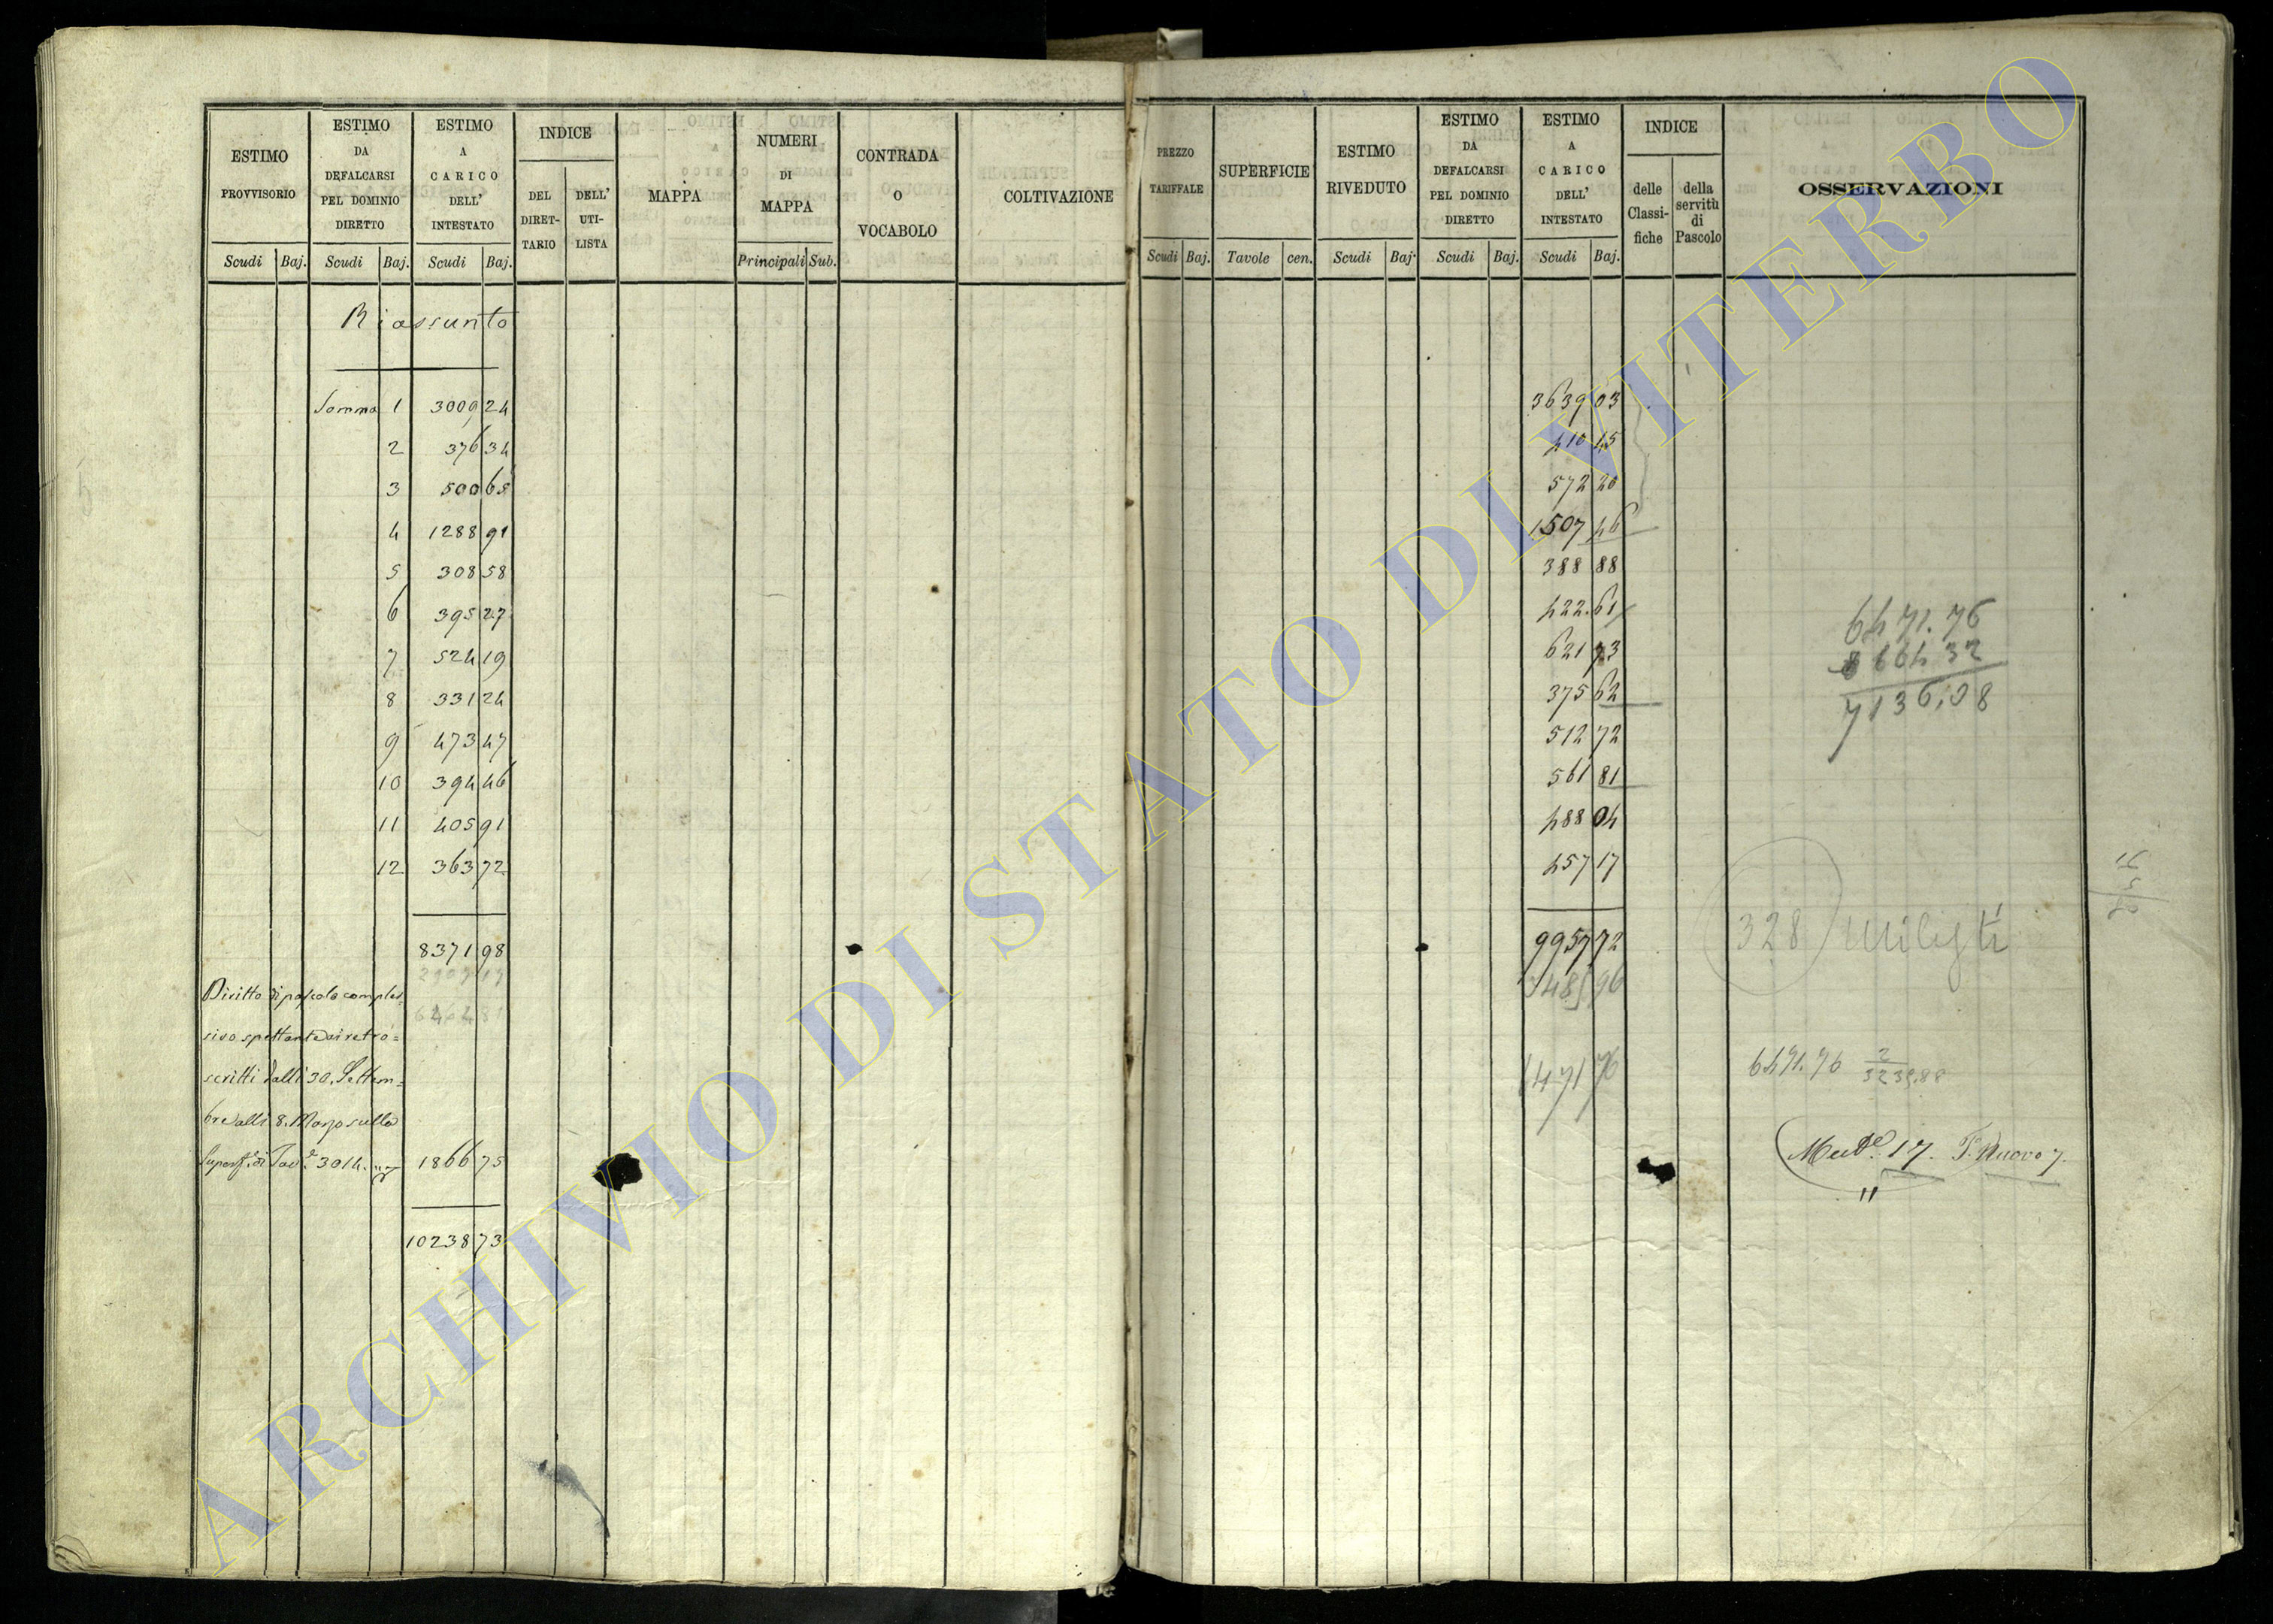 ESTIMO PROVVISORIO
Scudi Baj.
ESTIMO DA DEFALCARSI PEL DOMINIO DIRETTO
Scudi Baj.
ESTIMO A CARICO DELL' INTESTATO
Scudi Baj.
INDICE
DEL DIRET-TARIO
DELL' UTI-LISTA
MAPPA
NUMERI DI MAPPA
Principali Sub.
CONTRADA O VOCABOLO
COLTIVAZIONE
Riassunto
Somma 1 3009 24
2 376 34
3 500 65
4 1288 91
5 308 58
6 395 27
7 524 19
8 331 24
9 473 47
10 394 46
11 405 91
12 363 72
8371 98
Diritto di pascolo comples=
sivo spettante ai retro=
scritti dalli 30. Settem=
bre alli 8. Marzo sulla
Superf.e di Tav.e 3014.
1866 75
10238 73
PREZZO TARIFFALE
Scudi Baj.
SUPERFICIE
Tavole cen.
ESTIMO RIVEDUTO
Scudi Baj
ESTIMO DA DEFALCARSI PEL DOMINIO DIRETTO
Scudi Baj.
ESTIMO A CARICO DELL' INTESTATO
Scudi Baj.
INDICE
delle Classi-fiche
della servitù di Pascolo
OSSERVAZIONI
3639 03
410 45
572 20
1507 46
388 88
422. 61
621 73
375 62
512 72
561 81
488 04
457 17
9957 72
3485 96
6471 76
6471.76
664 32
7136,08
328
6471.76 2
3235.88
17. T. Nuovo 7.
ARCHIVIO DI STATO DI VITERBO